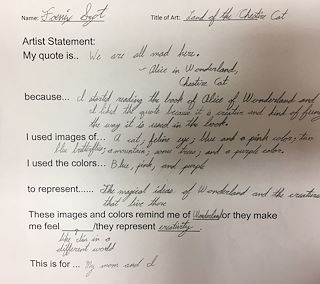 Name: Sypt Title of Art: Land of the Chestire Cat
Artist Statement:
My quote is.. We are all mad here.
- Alice in Wonderland,
Chestire Cat
because... I started reading the book of Alice of Wonderland and
I liked the quote because it is creative and kind of funny
the way it is used in the book.
I used images of... A cat, feline eye; blue and a pink color; two
blue butterflies; a mountain; some trees; and a purple color.
I used the colors... Blue, pink, and purple
to represent...... The magical ideas of Wonderland and the creatures
that live there
These images and colors remind me of Wonderland/or they make
me feel /they represent creativity.
like I'm in a
different world
This is for ... My mom and I